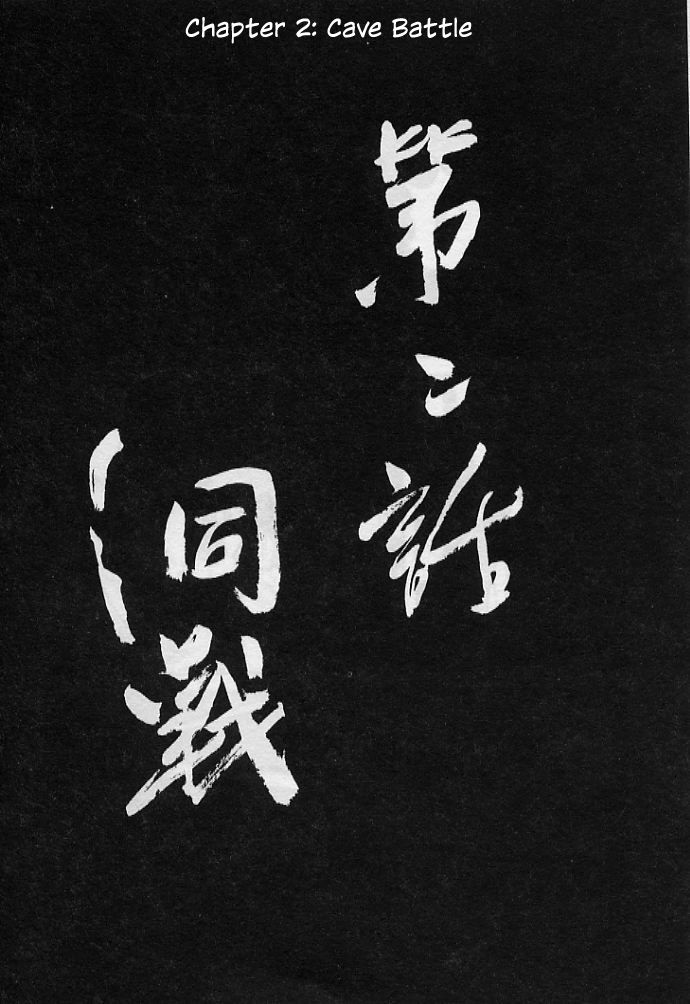 Chapter 2: Cave Battle
第二話
洞戦